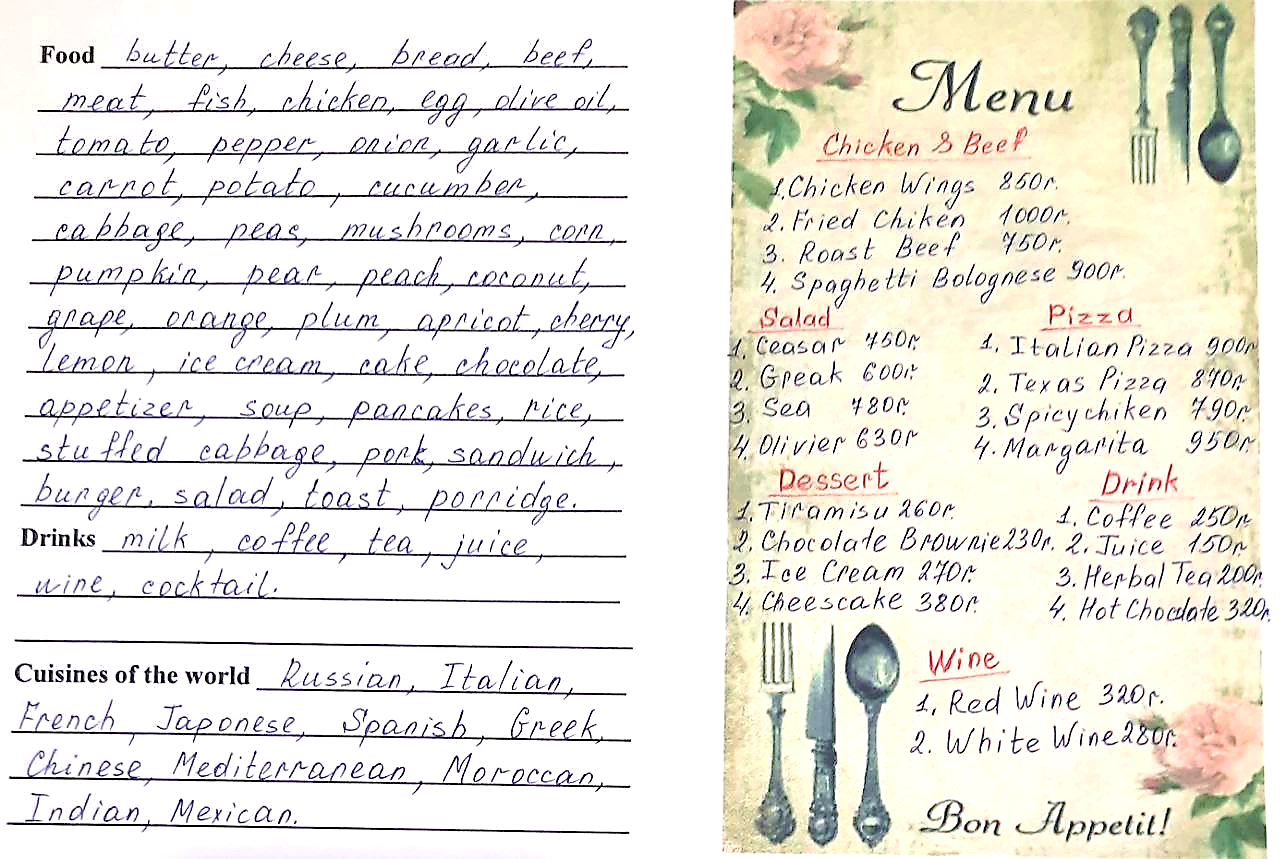 Food butter, cheese, bread, beef,
meat, fish, chicken, egg, olive oil,
tomato, pepper, onion, garlic,
carrot, potato, cucumber,
cabbage, peas, mushrooms, corn,
pumpkin, pear, peach, coconut,
grape, orange, plum, apricot, cherry,
lemon, ice cream, cake, chocolate,
appetizer, soup, pancakes, rice,
stuffed cabbage, pork, sandwich,
burger, salad, toast, porridge.
Drinks milk, coffee, tea, juice,
wine, cocktail.
Cuisines of the world Russian, Italian,
French, Japonese, Spanish, Greek,
Chinese, Mediterranean, Moroccan,
Indian, Mexican.
Menu
Chicken & Beef
1. Chicken Wings 850r.
2. Fried Chiken 1000r.
3. Roast Beef 750r.
4. Spaghetti Bolognese 900r.
Salad
1. Ceasar 750r.
2. Greak 600r.
3. Sea 780r.
4. Olivier 630r
Pizza
1. Italian Pizza 900r
2. Texas Pizza 870r
3. Spicy chiken 790r.
4. Margarita 950r.
Dessert
1. Tiramisu 260r.
2. Chocolate Brownie 230r.
3. Ice Cream 270r.
4. Cheescake 380r.
Drink
1. Coffee 250r
2. Juice 150r
3. Herbal Tea 200r.
4. Hot Chocolate 320r.
Wine
1. Red Wine 320r.
2. White Wine 280r.
Bon Appetit!